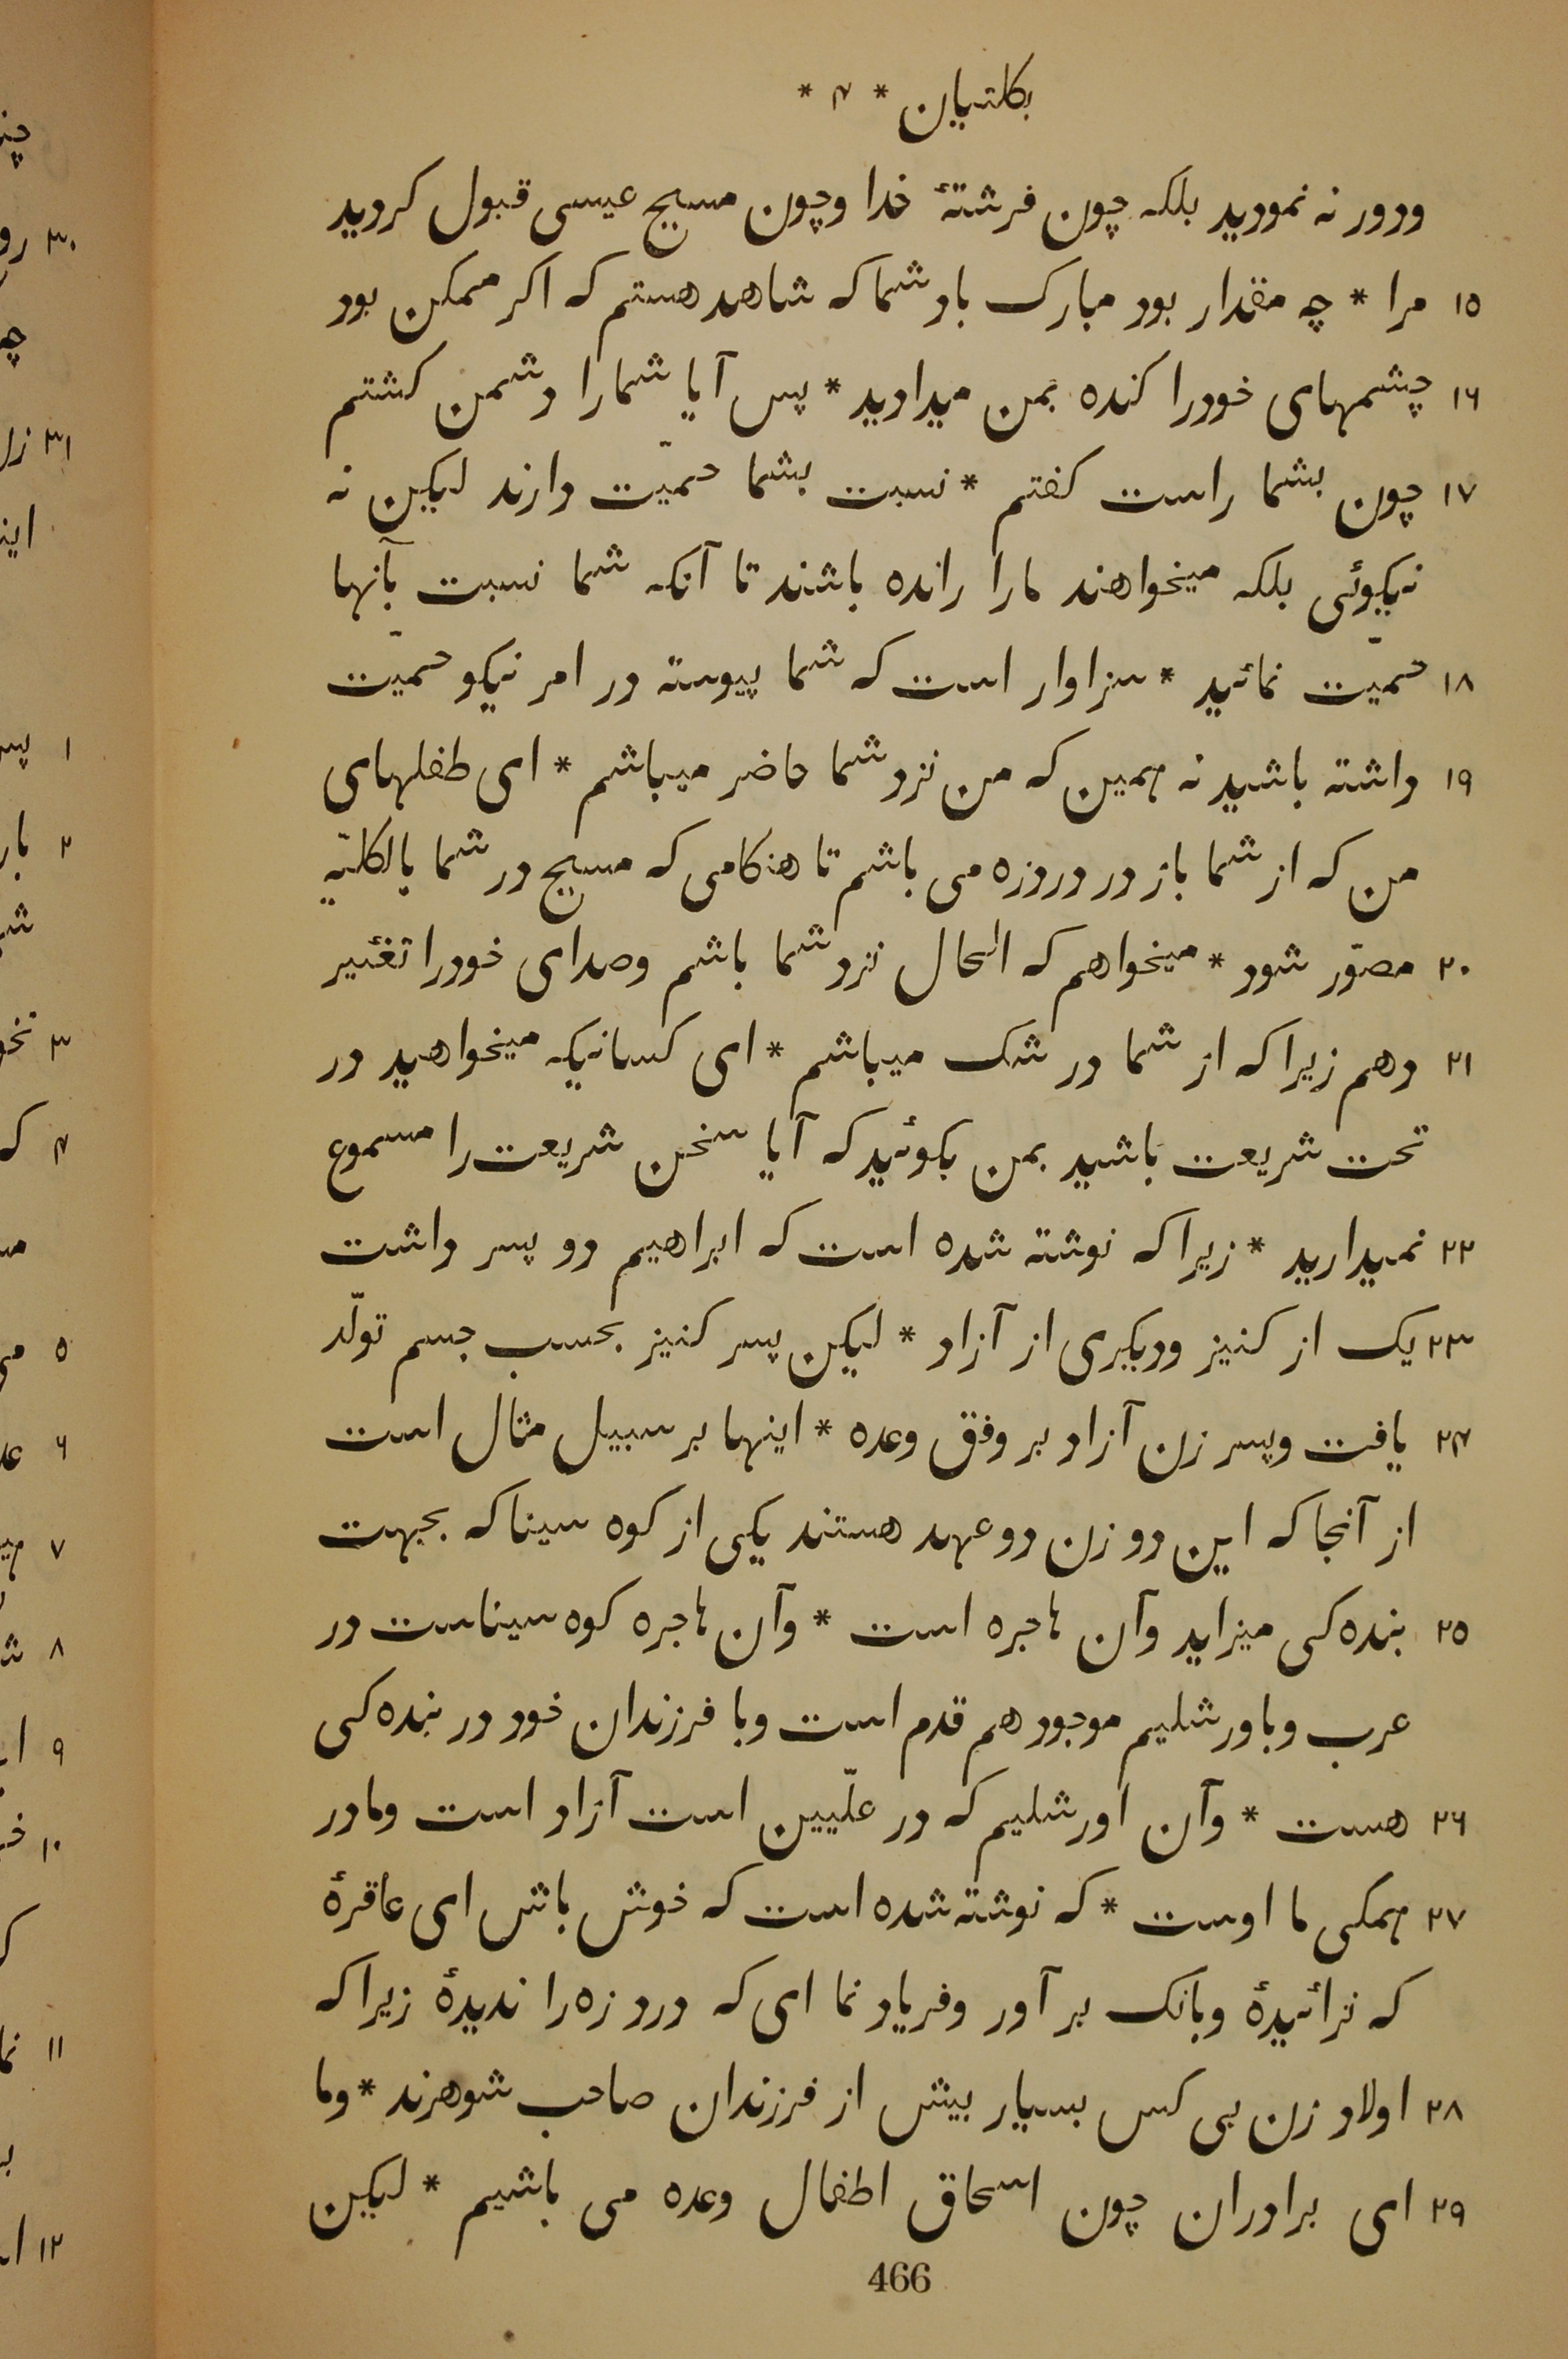 بكلتیان * ۴ *
ودور نه نمودید بلکه چون فرشتهٔ خدا وچون مسیح عیسی قبول کردید
۱۵ مرا * چه مقدار بود مبارک باد شما که شاهد هستم که اکر ممکن بود
۱۶ چشمهای خودرا کنده بمن میدادید * پس آیا شمارا دشمن کشتم
۱۷ چون بشما راست کفتم * نسبت بشما حمیّت دارند لیکن نه
نیکوئی بلکه میخواهند مارا رانده باشند تا آنکه شما نسبت بآنها
۱۸ حمیّت نمائید * سزاوار است که شما پیوسته در امر نیکو حمیّت
۱۹ داشته باشید نه همین که من نزد شما حاضر میباشم * ای طفلهای
من که از شما باز در دروزه می باشم تا هنکامی که مسیح در شما بالکلیّه
۲۰ مصوّر شود * میخواهم که الحال نزد شما باشم وصدای خودرا تغئیر
۲۱ دهم زیرا که از شما در شک میباشم * ای کسانیکه میخواهید در
تحت شریعت باشید بمن بکوئید که آیا سخن شریعت را مسموع
۲۲ نمیدارید * زیرا که نوشته شده است که ابراهیم دو پسر داشت
۲۳ یک از کنیز ودیکری از آزاد * لیکن پسر کنیز بحسب جسم تولّد
۲۴ یافت وپسر زن آزاد بر وفق وعده * اینها بر سبیل مثال است
از آنجا که این دو زن دو عهد هستند یکی از کوه سینا که بجهت
۲۵ بنده کی میزاید وآن هاجره است * وآن هاجره کوه سیناست در
عرب وباورشلیم موجود هم قدم است وبا فرزندان خود در بنده کی
۲۶ هست * وآن اورشلیم که در علّیین است آزاد است ومادر
۲۷ همکی ما اوست * که نوشته شده است که خوش باش ای عاقرهٔ
که نزائیدهٔ وبانک بر آور وفریاد نما ای که درد زه را ندیدهٔ زیرا که
۲۸ اولاد زن بی کس بسیار بیش از فرزندان صاحب شوهرند * وما
۲۹ ای برادران چون اسحاق اطفال وعده می باشیم * لیکن
466